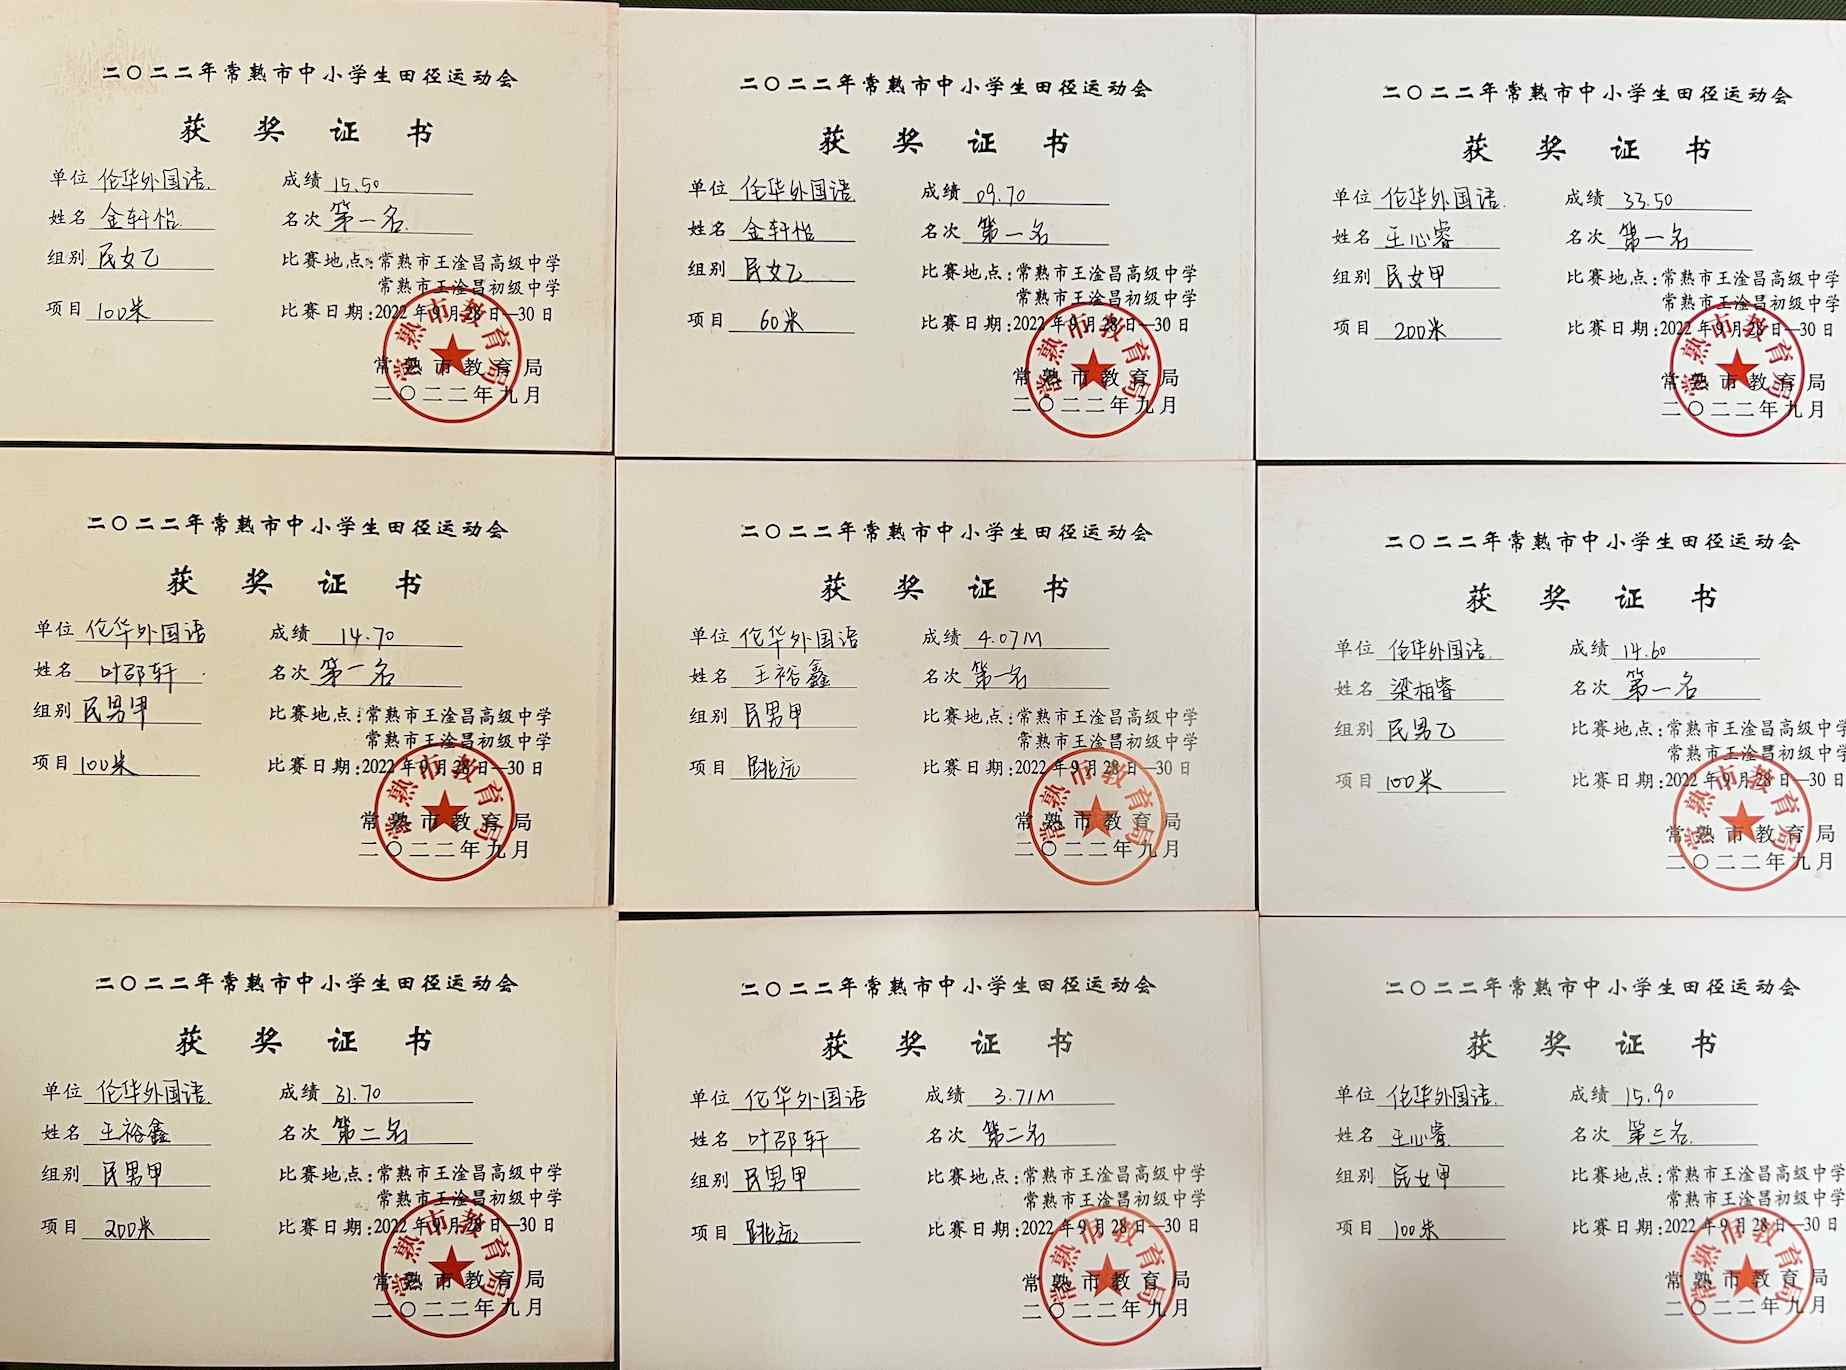 二〇二二年常熟市中小学生田径运动会
获奖证书
单位 伦华外国语 成绩 15.50
姓名 金轩怡 名次 第一名
组别 民女乙 比赛地点:常熟市王淦昌高级中学
常熟市王淦昌初级中学
项目 100米 比赛日期:2022年9月28日—30日
常熟市教育局
常熟市教育局
二〇二二年九月
二〇二二年常熟市中小学生田径运动会
获奖证书
单位 伦华外国语 成绩 09.70
姓名 金轩怡 名次 第一名
组别 民女乙 比赛地点:常熟市王淦昌高级中学
常熟市王淦昌初级中学
项目 60米 比赛日期:2022年9月28日—30日
常熟市教育局
常熟市教育局
二〇二二年九月
二〇二二年常熟市中小学生田径运动会
获奖证书
单位 伦华外国语 成绩 33.50
姓名 王心睿 名次 第一名
组别 民女甲 比赛地点:常熟市王淦昌高级中学
常熟市王淦昌初级中学
项目 200米 比赛日期:2022年9月28日—30日
常熟市教育局
常熟市教育局
二〇二二年九月
二〇二二年常熟市中小学生田径运动会
获奖证书
单位 伦华外国语 成绩 14.70
姓名 叶邵轩 名次 第一名
组别 民男甲 比赛地点:常熟市王淦昌高级中学
常熟市王淦昌初级中学
项目 100米 比赛日期:2022年9月28日—30日
常熟市教育局
常熟市教育局
二〇二二年九月
二〇二二年常熟市中小学生田径运动会
获奖证书
单位 伦华外国语 成绩 4.07M
姓名 王裕鑫 名次 第一名
组别 民男甲 比赛地点:常熟市王淦昌高级中学
常熟市王淦昌初级中学
项目 跳远 比赛日期:2022年9月28日—30日
常熟市教育局
常熟市教育局
二〇二二年九月
二〇二二年常熟市中小学生田径运动会
获奖证书
单位 伦华外国语 成绩 14.60
姓名 梁柏睿 名次 第一名
组别 民男乙 比赛地点:常熟市王淦昌高级中学
常熟市王淦昌初级中学
项目 100米 比赛日期:2022年9月28日—30日
常熟市教育局
常熟市教育局
二〇二二年九月
二〇二二年常熟市中小学生田径运动会
获奖证书
单位 伦华外国语 成绩 31.70
姓名 王裕鑫 名次 第二名
组别 民男甲 比赛地点:常熟市王淦昌高级中学
常熟市王淦昌初级中学
项目 200米 比赛日期:2022年9月28日—30日
常熟市教育局
常熟市教育局
二〇二二年九月
二〇二二年常熟市中小学生田径运动会
获奖证书
单位 伦华外国语 成绩 3.71M
姓名 叶邵轩 名次 第二名
组别 民男甲 比赛地点:常熟市王淦昌高级中学
常熟市王淦昌初级中学
项目 跳远 比赛日期:2022年9月28日—30日
常熟市教育局
常熟市教育局
二〇二二年九月
二〇二二年常熟市中小学生田径运动会
获奖证书
单位 伦华外国语 成绩 15.90
姓名 王心睿 名次 第三名
组别 民女甲 比赛地点:常熟市王淦昌高级中学
常熟市王淦昌初级中学
项目 100米 比赛日期:2022年9月28日—30日
常熟市教育局
常熟市教育局
二〇二二年九月